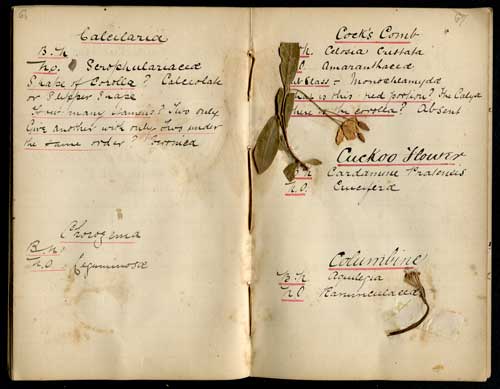 Calcilaria
B.N.
N.O. Scrophulariaceæ
Shape of Corolla? Calceolate
or Slipper Shape
How many Stamens? Two only
Give another with only two under
the same order?
Chorozema
B.N.
N.O. Leguminosæ
67
Cock's Comb
N. Celosia Cristata
O. Amaranthaceæ
Sub Class = Monochlamydæ
is this red portion? The Calyx
there is the corolla? Absent
Cuckoo Flower
B.N. Cardamine Pratensis
N.O. Cruciferæ
Columbine
B.N. Aquilegia
N.O. Ranunculaceæ